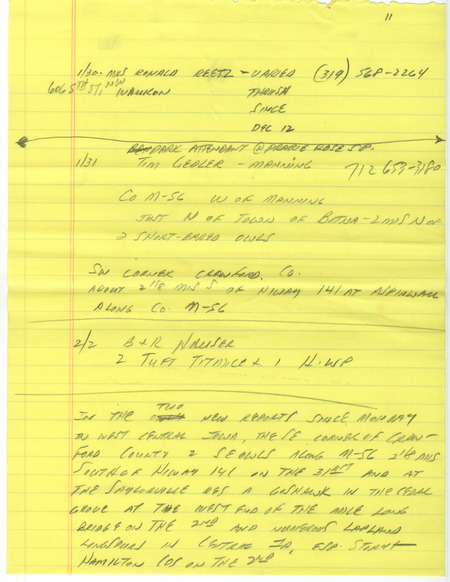 11
1/30 - MRS RONALD REETZ - VARIED (319) 568-2264
606 5TH ST, NW WAUKON THRUSH
SINCE
DEC 12
PARK ATTENDANT @ PRAIRIE ROSE S.P.
1/31 TIM GEDLER - MANNING 712 653-3180
CO M-56 W OF MANNING
JUST N OF TOWN OF BOTNA - 2 MIS N OF
2 SHORT-EARED OWLS
SW CORNER CRAWFORD, CO.
ABOUT 2 1/8 MIS S OF HIWAY 141 AT ASPINWALL
ALONG CO M-56
2/2 B & R HAUSER
2 TUFT TITMICE & 1 H. WP
IN THE TWO NEW REPORTS SINCE MONDAY
IN WEST CENTRAL IOWA, THE SE CORNER OF CRAW-
FORD COUNTY 2 SEOWLS ALONG M-56 2 1/8 MIS
SOUTH OF HIWAY 141 ON THE 31ST AND AT
THE SAYLORVILLE RES A GOSHAWK IN THE CEDAR
GROVE AT THE WEST END OF THE MILE LONG
BRIDGE ON THE 2ND AND NUMEROUS LAPLAND
LONGSPURS IN CENTRAL IA, ESP. STORY &
HAMILTON COS ON THE 2ND